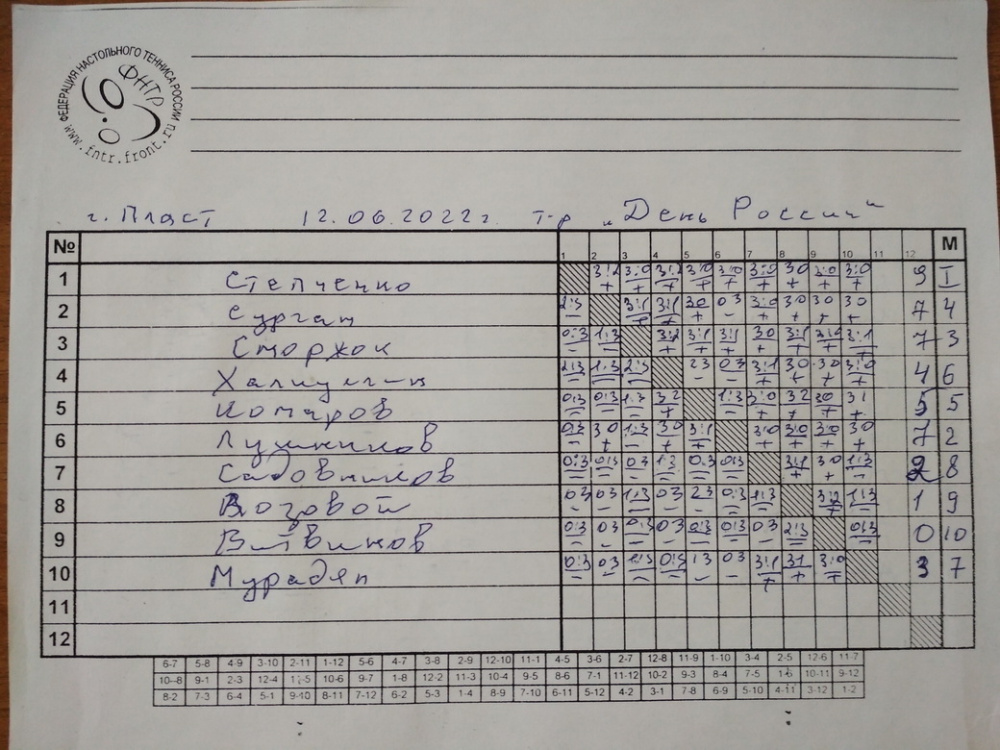 ФЕДЕРАЦИЯ НАСТОЛЬНОГО ТЕННИСА РОССИИ
ФНТР
www.fntr.front.ru
г. Пласт 12.06.2022г. т-р „День России“
№ 1 2 3 4 5 6 7 8 9 10 11 12 М
1 Степченко 3:2 + 3:0 + 3:2 + 3:0 + 3:0 + 3:0 + 30 + 3:0 + 3:0 + 9 I
2 Сурган 2:3 – 3:1 + 3:1 + 30 + 03 – 3:0 + 30 + 30 + 30 + 7 4
3 Сторжок 0:3 – 1:3 – 3:2 + 3:1 + 3:1 + 30 + 3:1 + 3:0 + 3:1 + 7 3
4 2:3 – 1:3 – 2:3 – 23 – 03 – 3:1 + 30 + 30 + 3:0 + 4 6
5 Комаров 0:3 – 0:3 – 1:3 – 32 + 1:3 – 3:0 + 32 + 30 + 31 + 5 5
6 Лушников 0:3 – 30 + 1:3 – 30 + 3:1 + 30 + 3:0 + 3:0 + 30 + 7 2
7 Садовников 0:3 – 0:3 – 03 – 1:3 – 0:3 – 0:3 – 3:1 + 30 + 1:3 – 2 8
8 Возовой 03 – 03 – 1:3 – 03 – 23 – 0:3 – 1:3 – 3:2 + 1:3 – 1 9
9 Витвинов 0:3 – 03 – 0:3 – 03 – 0:3 – 0:3 – 03 – 2:3 – 0:3 – 0 10
10 Мурадян 0:3 – 03 – 1:3 – 0:3 – 13 – 03 – 3:1 + 31 + 3:0 + 3 7
11
12
6-7 5-8 4-9 3-10 2-11 1-12 5-6 4-7 3-8 2-9 12-10 11-1 4-5 3-6 2-7 12-8 11-9 1-10 3-4 2-5 12-6 11-7
10-8 9-1 2-3 12-4 11-5 10-6 9-7 1-8 12-2 11-3 10-4 9-5 8-6 7-1 11-12 10-2 9-3 8-4 7-5 1-6 10-11 9-12
8-2 7-3 6-4 5-1 9-10 8-11 7-12 6-2 5-3 1-4 8-9 7-10 6-11 5-12 4-2 3-1 7-8 6-9 5-10 4-11 3-12 1-2